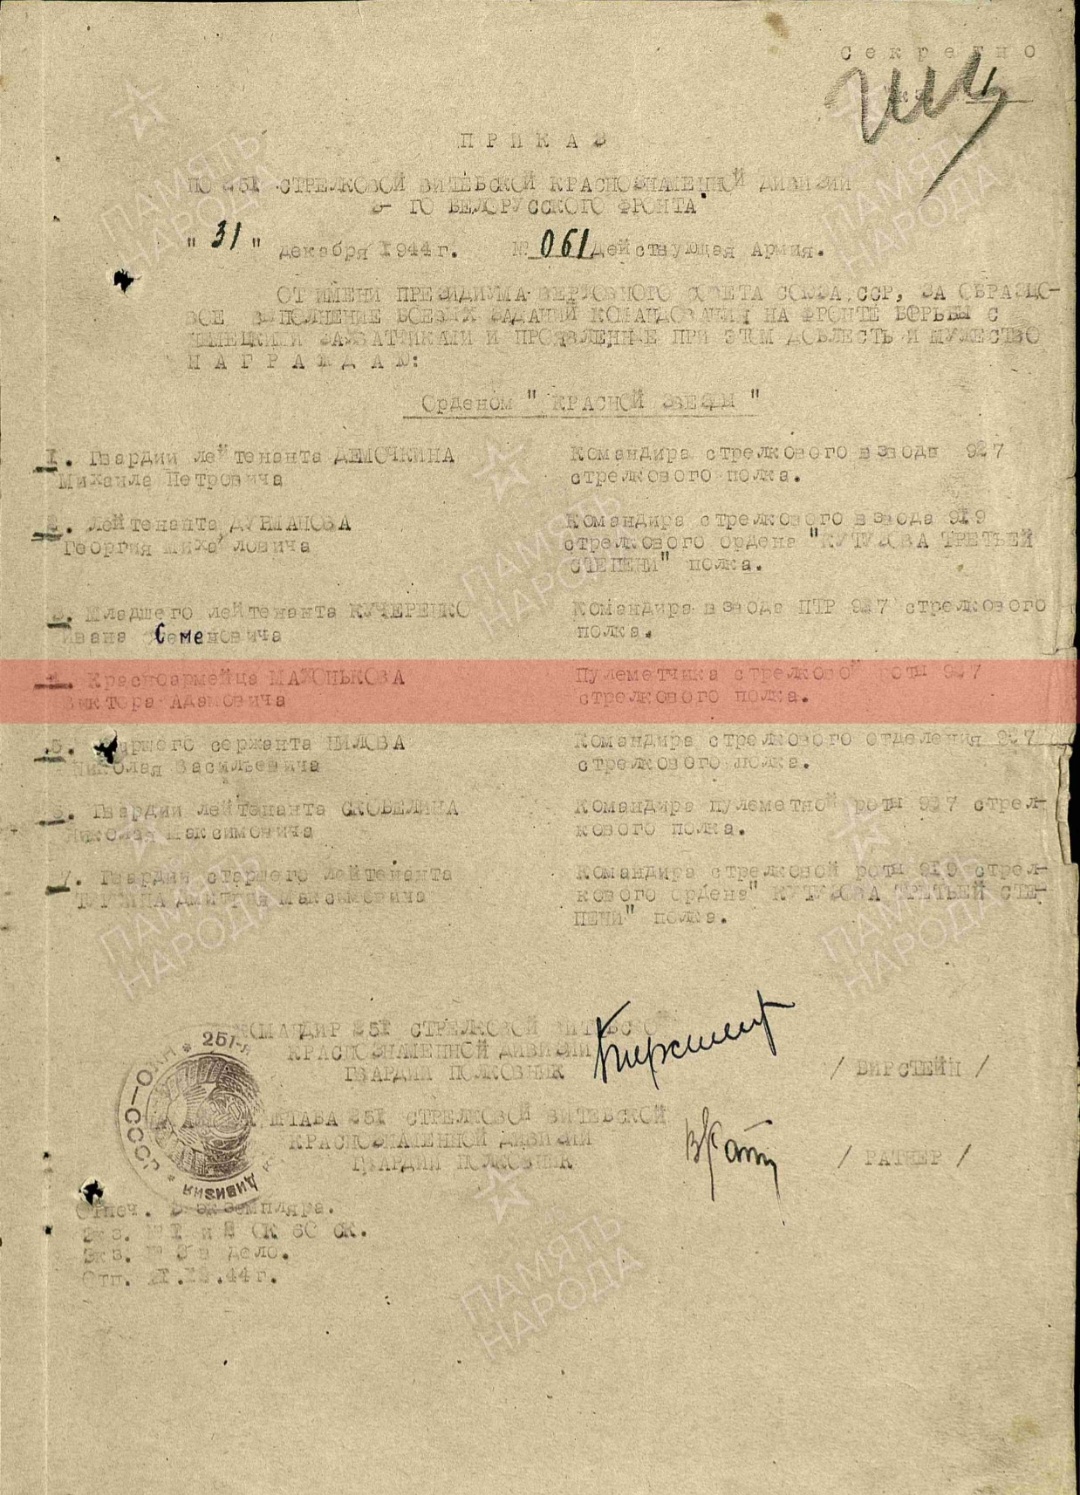 Секретно
ПРИКАЗ
ПО 251 СТРЕЛКОВОЙ ВИТЕБСКОЙ КРАСНОЗНАМЕННОЙ ДИВИЗИИ
3- ГО БЕЛОРУССКОГО ФРОНТА
" 31 " декабря 1944г. № 061 Действующая Армия.
ОТ ИМЕНИ ПРЕЗИДИУМА ВЕРХОВНОГО СОВЕТА СОЮЗА ССР, ЗА ОБРАЗЦО-
ВОЕ ВЫПОЛНЕНИЕ БОЕВЫХ ЗАДАНИЙ КОМАНДОВАНИЯ НА ФРОНТЕ БОРЬБЫ С
НЕМЕЦКИМИ ЗАХВАТЧИКАМИ И ПРОЯВЛЕННЫЕ ПРИ ЭТОМ ДОБЛЕСТЬ И МУЖЕСТВО
НАГРАЖДАЮ:
Орденом " КРАСНОЙ ЗВЕЗДЫ "
1. Гвардии лейтенанта ДЕМОЧКИНА Командира стрелкового взвода 927
Михаила Петровича стрелкового полка.
2. Лейтенанта Командира стрелкового взвода 919
Георгия Михайловича стрелкового ордена "КУТУЗОВА ТРЕТЬЕЙ
СТЕПЕНИ" полка.
3. Младшего лейтенанта КУЧЕРЕНКО Командира взвода ПТР 927 стрелкового
Ивана Семеновича полка.
4. Красноармейца МАХОНЬКОВА Пулеметчика стрелковой роты 927
Виктора Адамовича стрелкового полка.
5. Старшего сержанта Командира стрелкового отделения 927
Николая Васильевича стрелкового полка.
6. Гвардии лейтенанта СКОБЕЛИНА Командира пулеметной роты 927 стрел-
Николая Максимовича кового полка.
7. Гвардии старшего лейтенанта Командира стрелковой роты 919 стрел-
Дмитрия Максимовича кового ордена" КУТУЗОВА ТРЕТЬЕЙ СТЕ-
ПЕНИ" полка.
КОМАНДИР 251 СТРЕЛКОВОЙ ВИТЕБСКОЙ
КРАСНОЗНАМЕННОЙ ДИВИЗИИ
ГВАРДИИ ПОЛКОВНИК / ВИРСТЕЙН /
ШТАБА 251 СТРЕЛКОВОЙ ВИТЕБСКОЙ
КРАСНОЗНАМЕННОЙ ДИВИЗИИ
ГВАРДИИ ПОЛКОВНИК / РАТНЕР /
НКО-СССР * 251-я * дивизия
Отпеч. 3 экземпляра.
Экз. № 1 и 2 ОК 60 СК.
Экз. № 3 в дело.
Отп. .44г.
ПАМЯТЬ НАРОДА